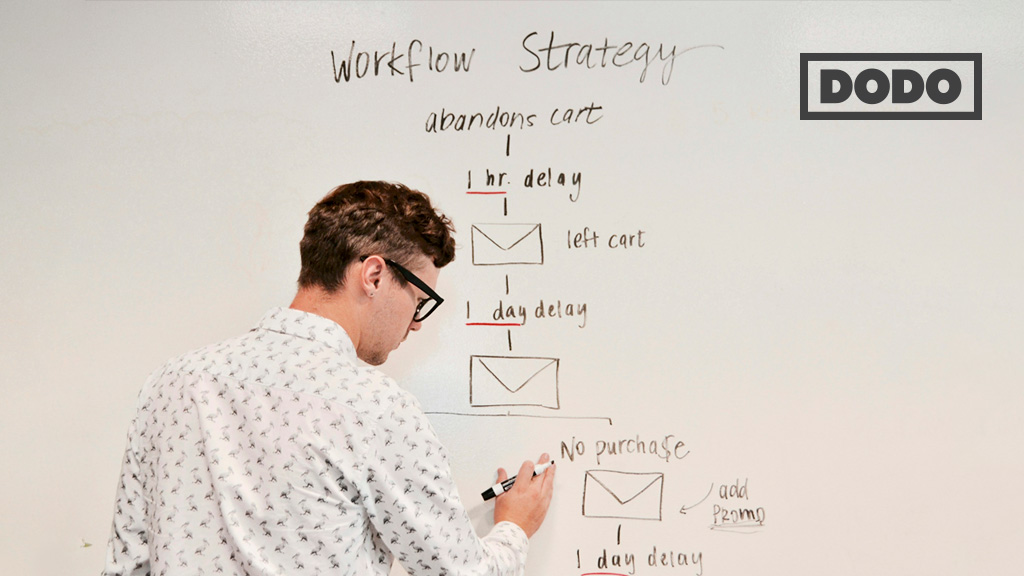 Workflow Strategy
DODO
abandons cart
1 hr. delay
left cart
1 day delay
No purcha$e
add
PROMO
1 day delay